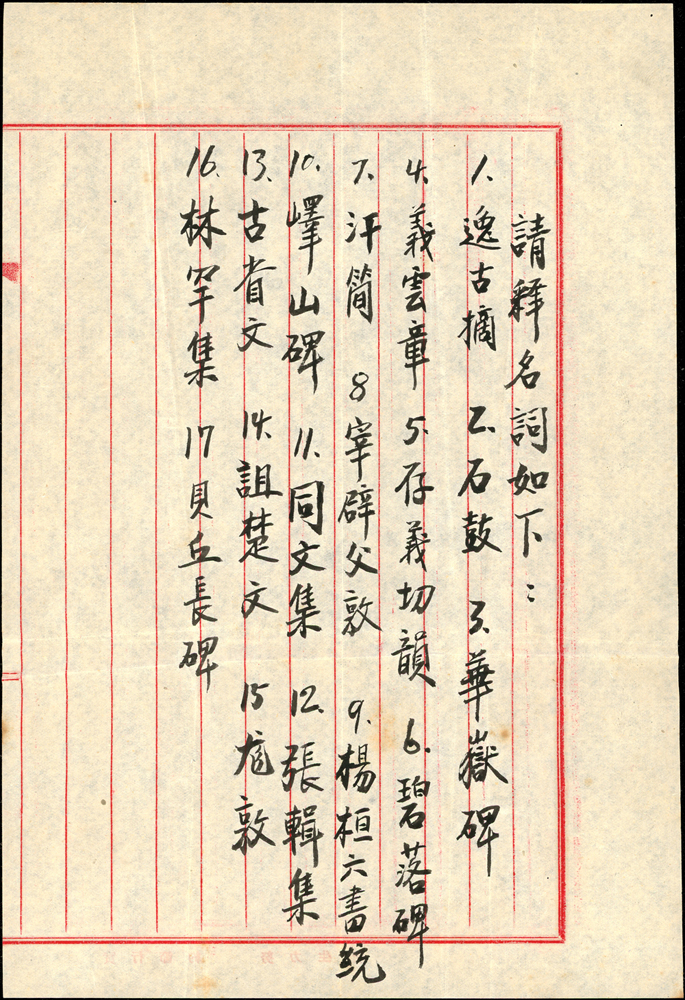 請释名詞如下：
1. 逸古摘 2. 石鼓 3. 華嶽碑
4. 義雲章 5. 存義切韻 6. 碧落碑
7. 汗简 8 宰辟父敦 9. 楊桓六書統
10. 嶧山碑 11. 同文集 12. 張輯集
13. 古省文 14. 詛楚文 15 敦
16. 林罕集 17 貝丘長碑